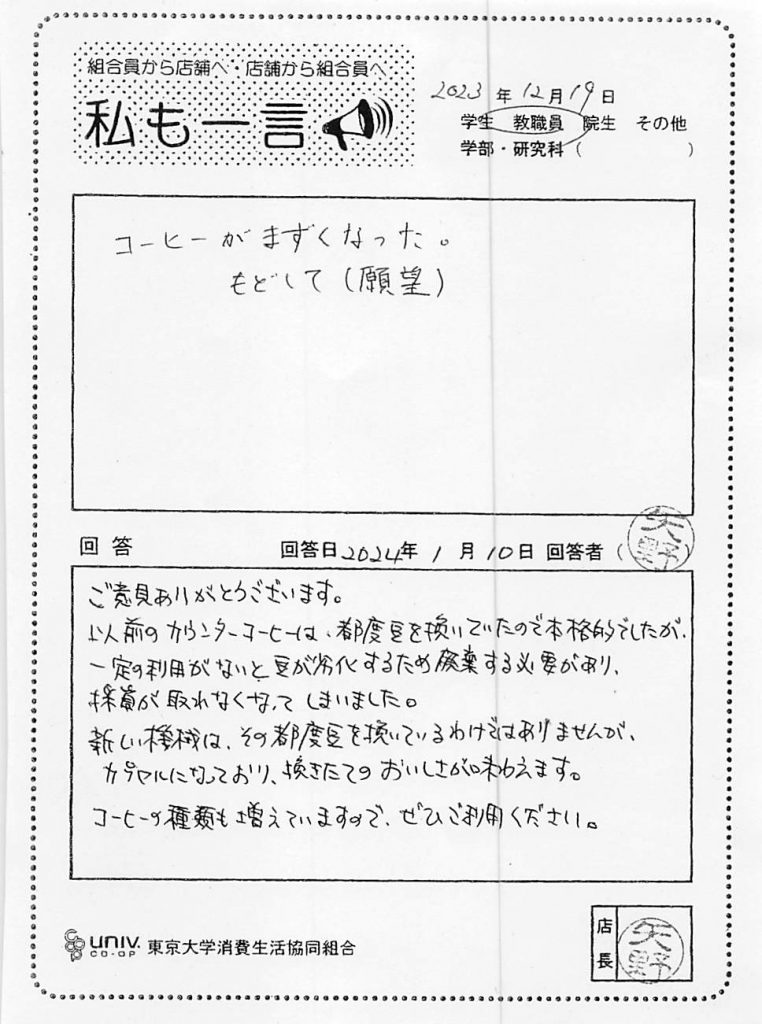 組合員から店舗へ・店舗から組合員へ
私も一言
2023年12月19日
学生 教職員 院生 その他
学部・研究科( )
コーヒーがまずくなった。
もどして(願望)
回答 回答日2024年1月10日 回答者(矢野)
ご意見ありがとうございます。
以前のカウンターコーヒーは、都度豆を挽いていたので本格的でしたが、
一定の利用がないと豆が劣化するため廃棄する必要があり、
採算が取れなくなってしまいました。
新しい機械は、その都度豆を挽いているわけではありませんが、
カプセルになっており、挽きたてのおいしさが味わえます。
コーヒーの種類も増えていますので、ぜひご利用ください。
UNIV. CO-OP 東京大学消費生活協同組合
店長 矢野